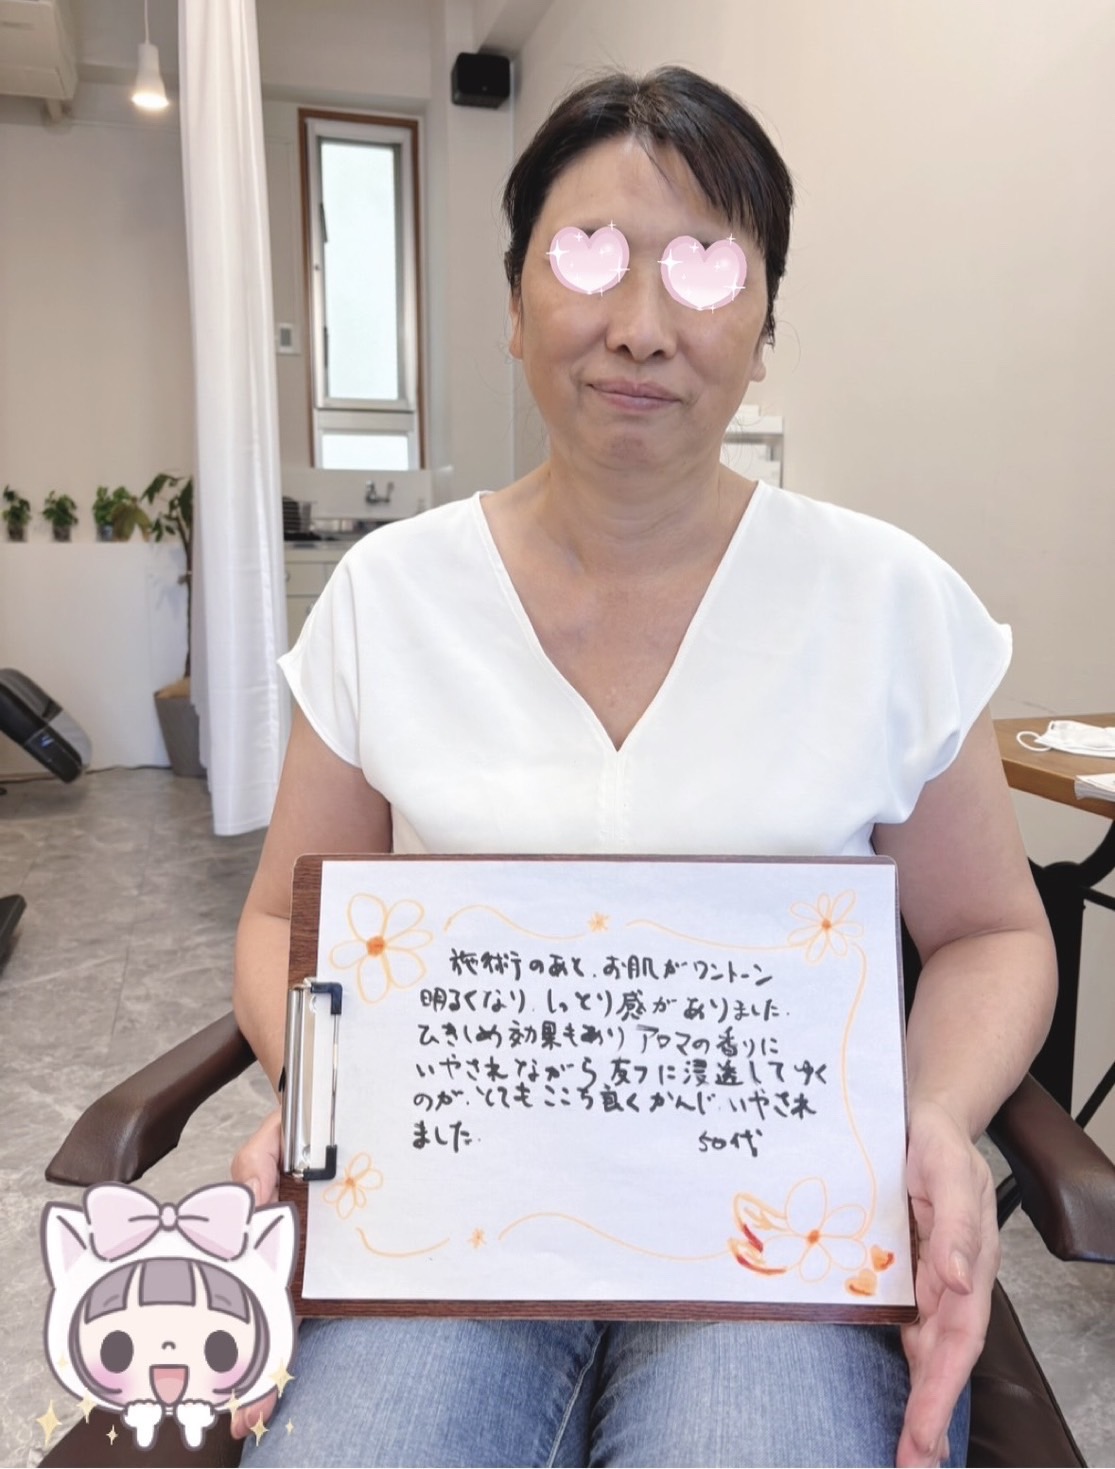 施術のあと、お肌がワントーン
明るくなり、しっとり感がありました。
ひきしめ効果もあり アロマの香りに
いやされながら 友フに浸透してゆく
のが、とても ここち良くかんじ、いやされ
ました。 50代